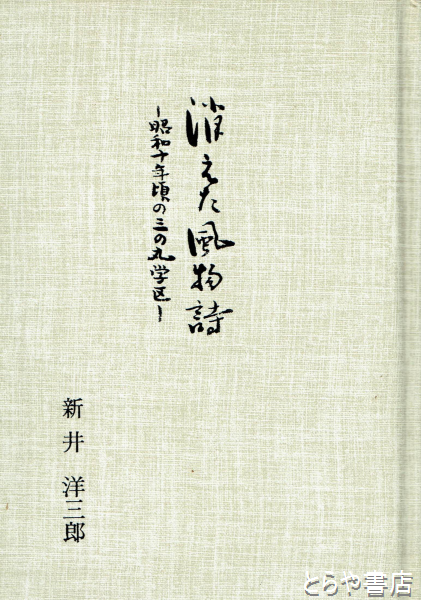 消えた風物詩
—昭和十年頃の三の丸学区—
新井洋三郎
とらや書店